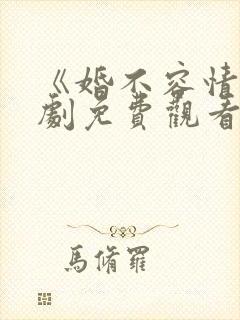 《婚不容情
劇免費觀看
馬脩羅